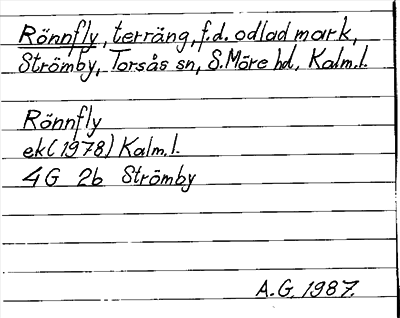 Rönnfly, terräng, f.d. odlad mark,
Strömby, Torsås sn, S. Möre hd, Kalm.l.
Rönnfly
ek (1978) Kalm.l.
4G 2b Strömby
A.G. 1987.